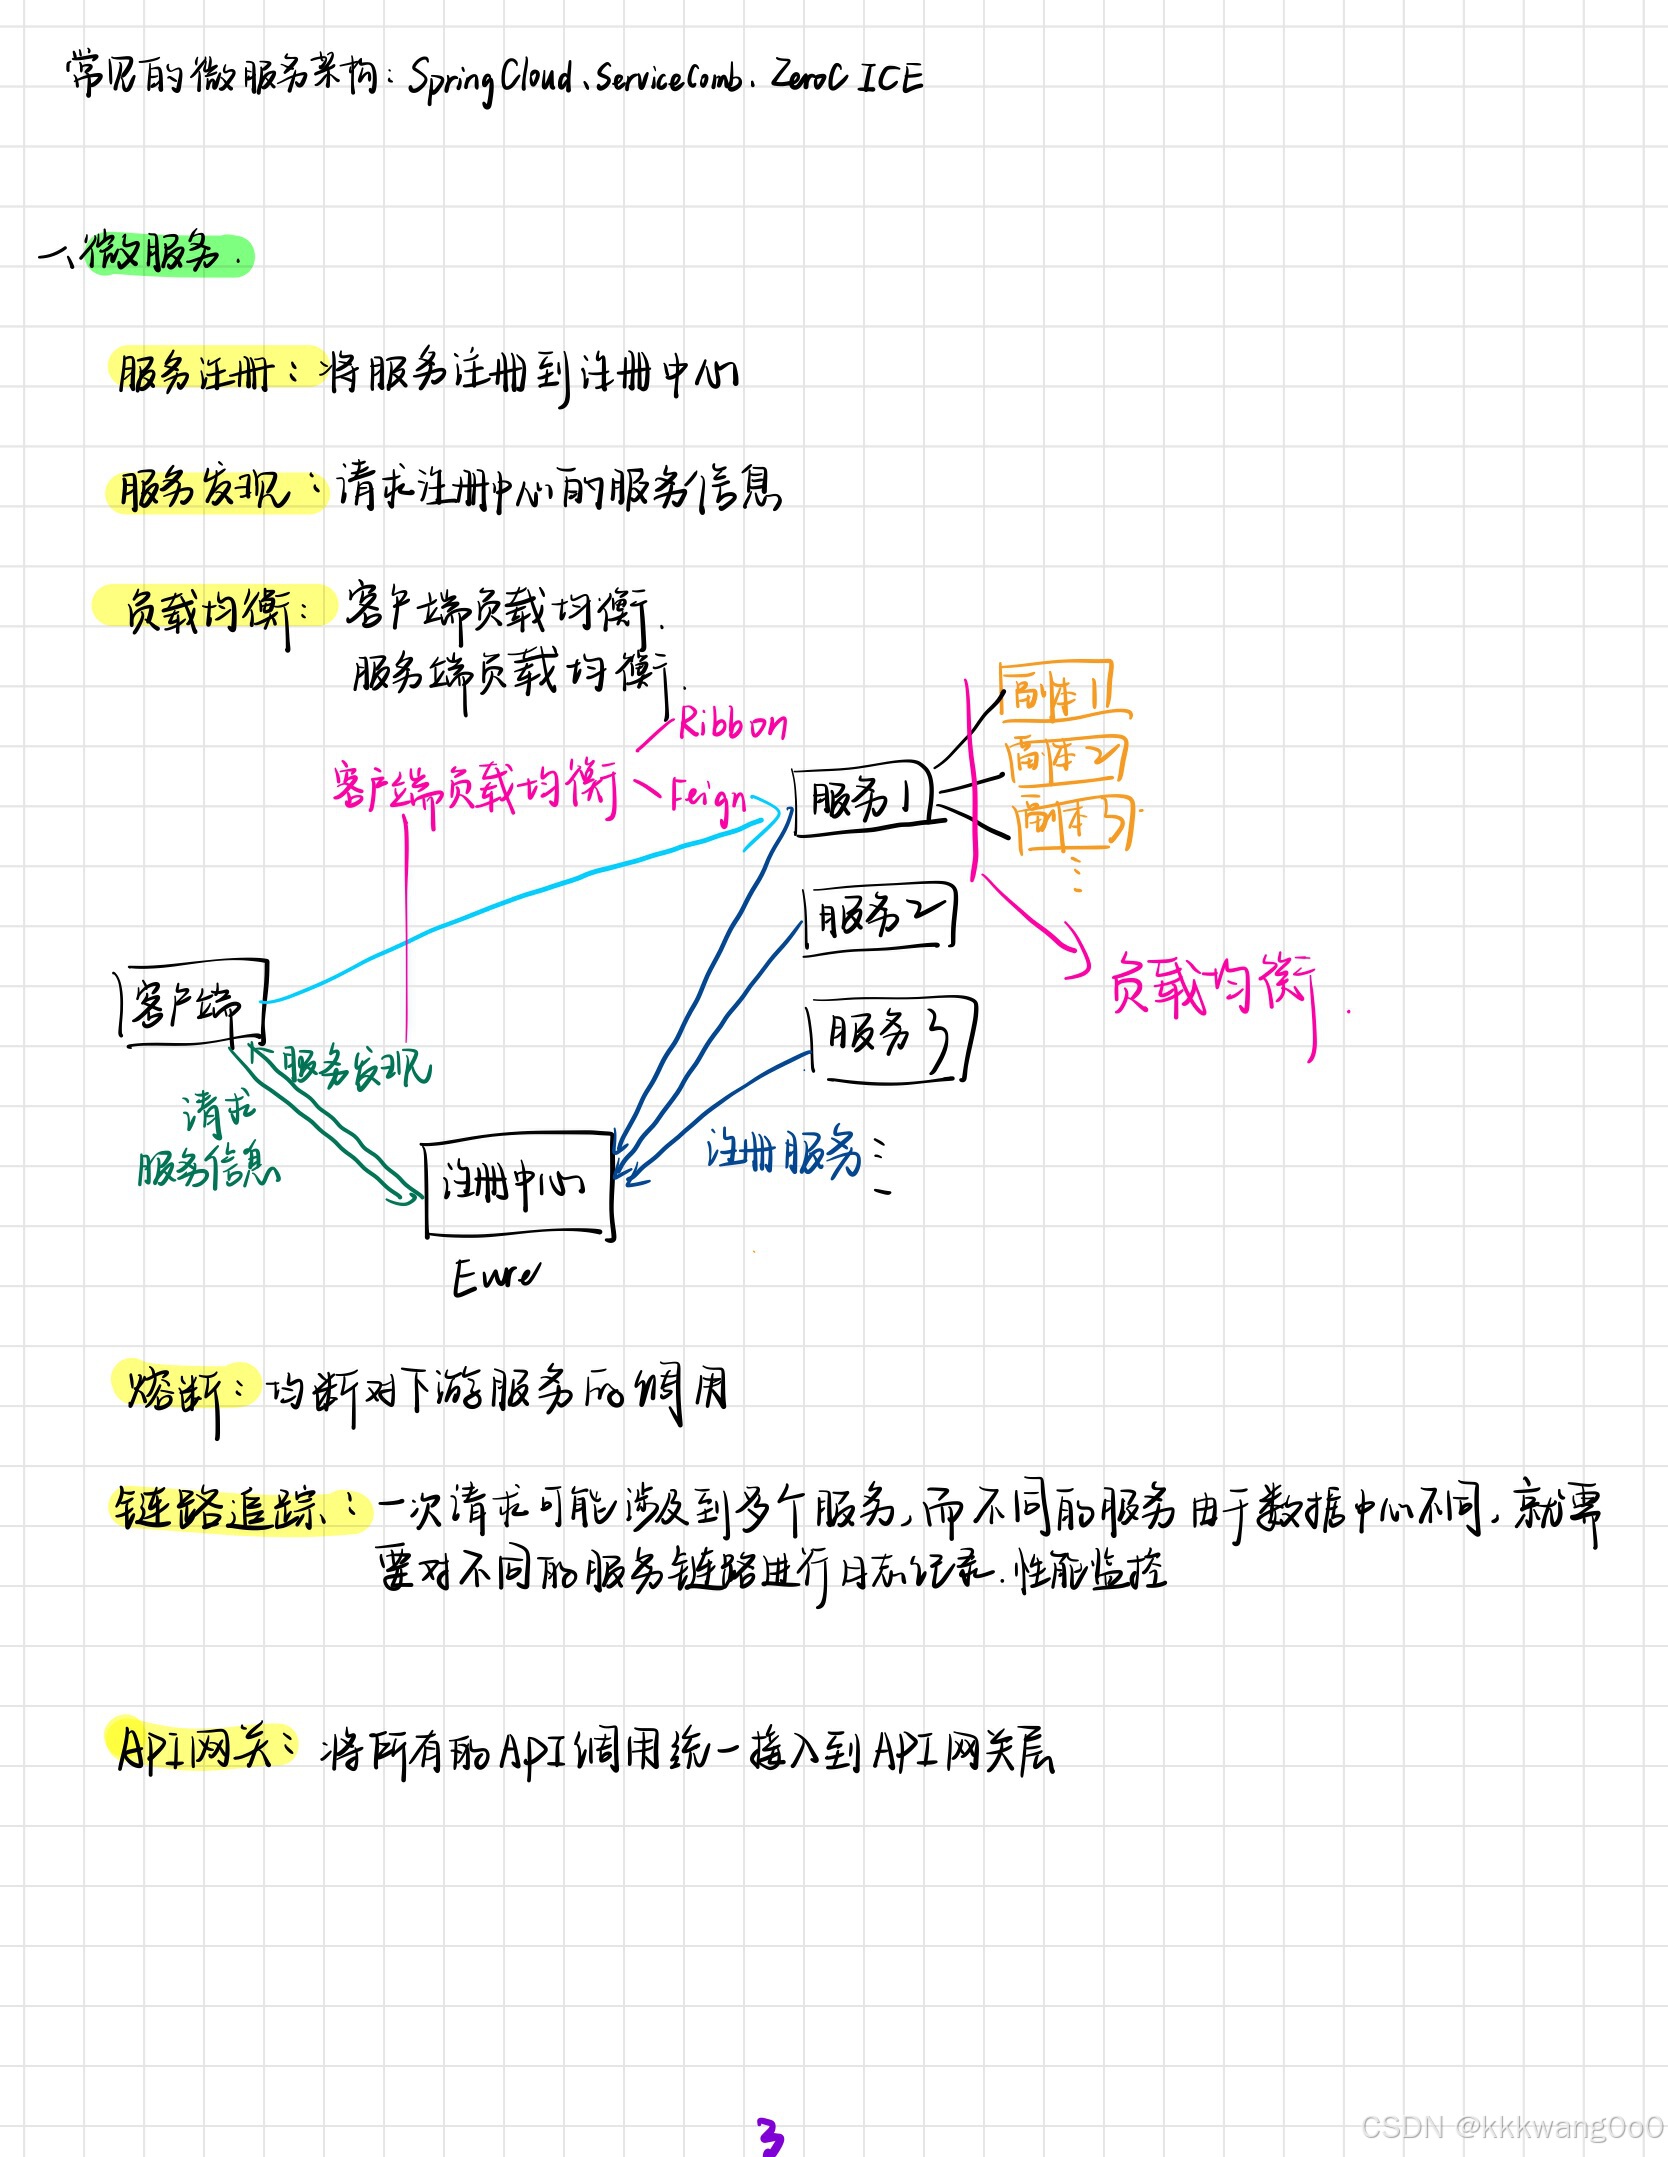 常见的微服务架构：SpringCloud、ServiceComb、ZeroC ICE
一、微服务.
服务注册：将服务注册到注册中心
服务发现：请求注册中心的服务信息
负载均衡：客户端负载均衡.
服务端负载均衡.
Ribbon
客户端负载均衡
Feign
服务1
副本1
副本2
副本3
⋮
服务2
负载均衡.
客户端
服务3
服务发现
请求
服务信息
注册服务
注册中心
Eure
熔断：均断对下游服务的调用
链路追踪、：一次请求可能涉及到多个服务,而不同的服务由于数据中心不同,就需
要对不同的服务链路进行日志纪录.性能监控
API网关：将所有的API调用统一接入到API网关层
3
CSDN @kkkwang0o0